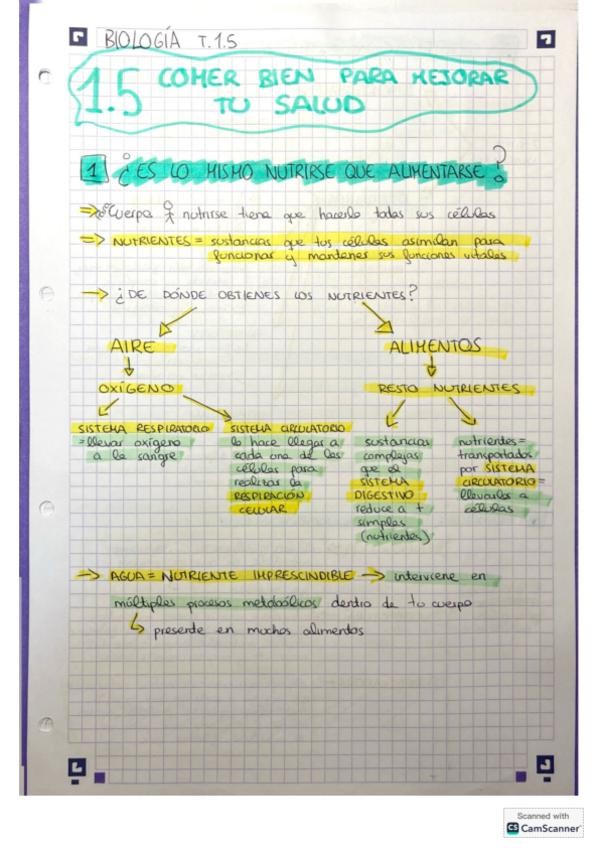 BIOLOGÍA T.1.5
1.5 COMER BIEN PARA MEJORAR
TU SALUD
1 ¿ES LO MISMO NUTRIRSE QUE ALIMENTARSE?
Cuerpo nutrirse tiene que hacerlo todas sus células
=> NUTRIENTES = sustancias que tus células asimilan para
funcionar y mantener sus funciones vitales
→ ¿DE DÓNDE OBTIENES LOS NUTRIENTES?
AIRE
ALIMENTOS
OXÍGENO
RESTO NUTRIENTES
SISTEMA RESPIRATORIO
=llevar oxígeno
a la sangre
SISTEMA CIRCULATORIO
lo hace llegar a
cada una de las
células para
realizar la
RESPIRACIÓN
CELULAR
sustancias
complejas
que el
SISTEMA
DIGESTIVO
reduce a +
simples
(nutrientes)
nutrientes=
transportados
por SISTEMA
CIRCULATORIO=
llevarlos a
células
→ AGUA = NUTRIENTE IMPRESCINDIBLE → interviene en
múltiples procesos metabólicos dentro de tu cuerpo
↳ presente en muchos alimentos
Scanned with
CS CamScanner